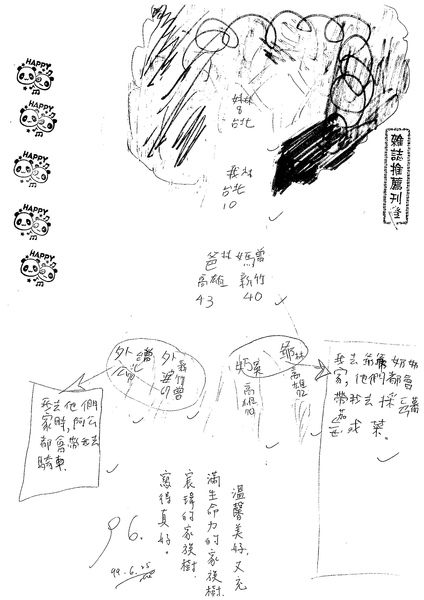 HAPPY
HAPPY
HAPPY
HAPPY
HAPPY
雜誌推薦刊登
姊林
8
台北
我林
台北
10
爸林 媽曾
高雄 新竹
43 40
外公曾
外婆
新竹
奶吳
高雄
爺林
高雄
72
我去他們
家時,阿公
都會帶我去
騎車
我去爺爺奶奶
家,他們都會
帶我去採
茄
或葉
溫馨美好,又充
滿生命力的家族樹。
宸瑋的家族樹
寫得真好。
96.
99.6.25